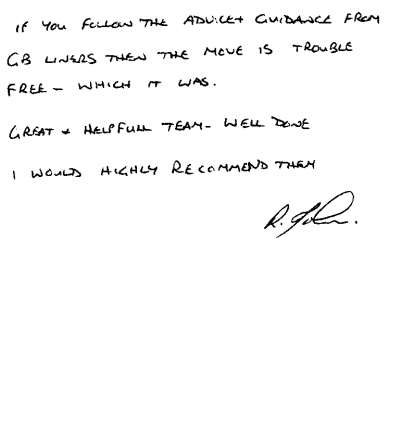 IF YOU FOLLOW THE ADVICE + GUIDANCE FROM
GB LINERS THEN THE MOVE IS TROUBLE
FREE – WHICH IT WAS.
GREAT + HELPFULL TEAM – WELL DONE
I WOULD HIGHLY RECOMMEND THEM
R.